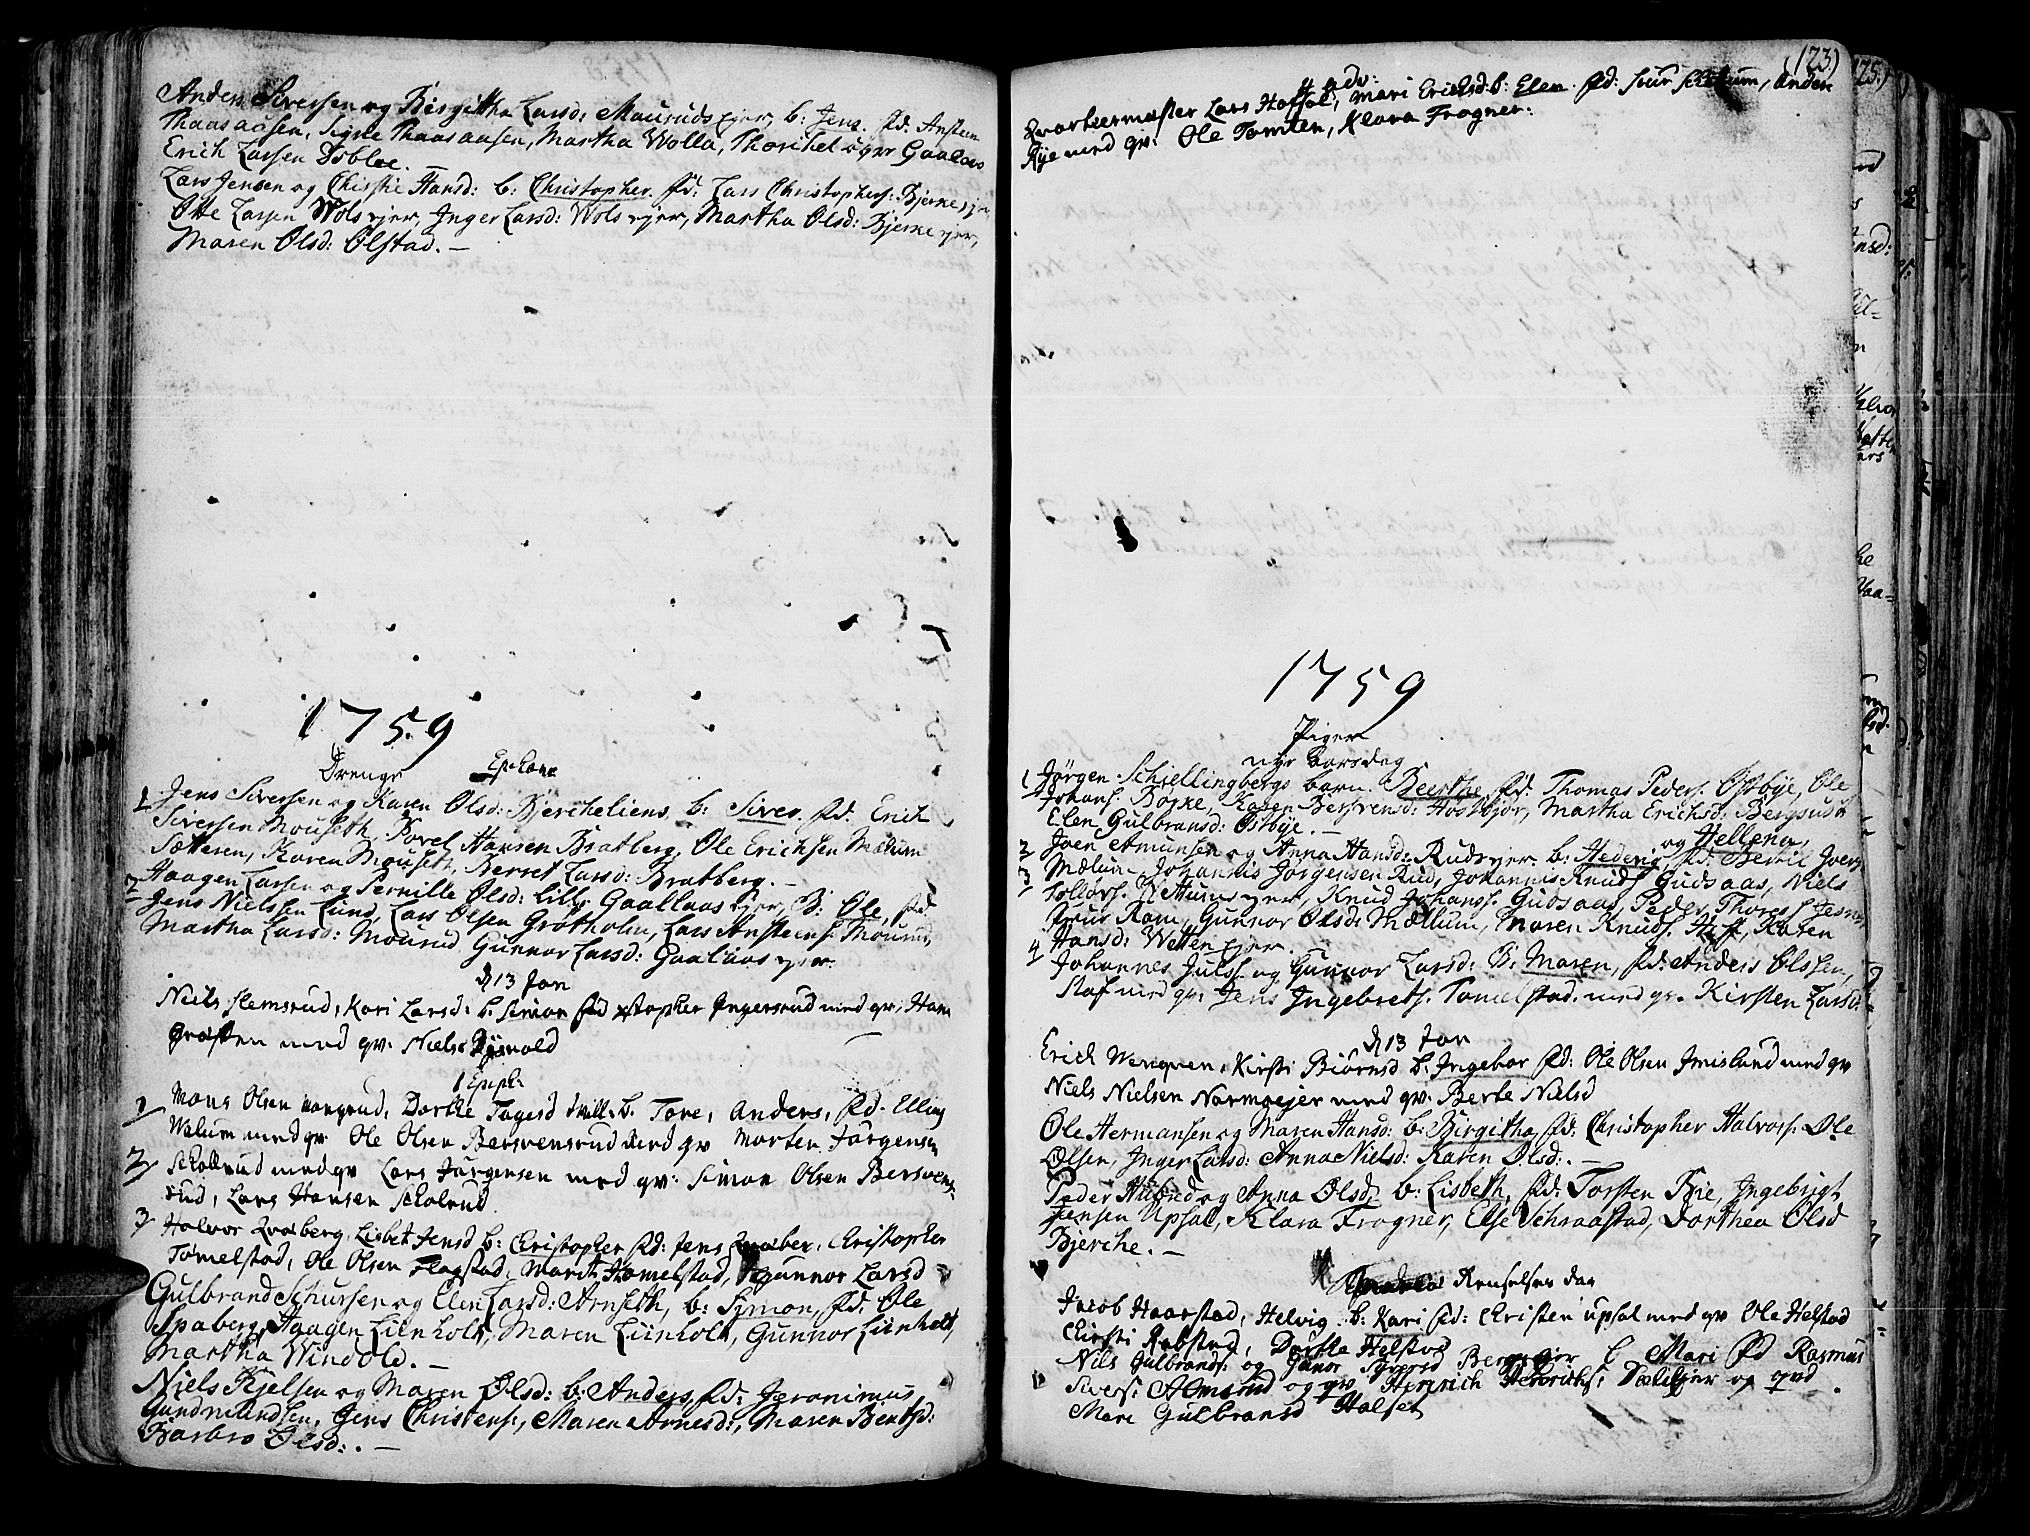 Anders Siversen og Birgitha Larsd: Mourudsejer, b: Jens. fd: Ansteen
Thaasaasen, Signe Thaasaasen, Martha Wolla, Thorchel Gaalaas
Erich Larsen Dobloe. –
Lars Jensen og Christie Hansd: b: Christopher. fd: Lars Christophers: Bjerne ejer,
Otte Larsen Wols ejer, Inger Larsd: Wols ejer, Martha Olsd: Bjerne ejer,
Maren Olsd: Olstad. –
1759
Drenge
1 Jens Siversen og Karen Olsd: Bjerkeliens b: Siver. fd: Erich
Siversen Mouseth, Povel Hansen Bratberg, Ole Erichsen Mælum
Sætteren, Karen Mouseth, Berret Larsd: Bratberg. –
2 Haagen Larsen og Pernille Olsd: Lille Gaallaas ejer, B: Ole, fd:
Jens Nielsen Lund, Lars Olsen Grotholm, Lars Ansteens: Mourud,
Martha Larsd: Mourud Gunnor Larsd: Gaalaas ejer.
d 13 Jan
Niels Stemsrud, Kari Larsd: b. Simon fd xstopher Ingersrud med qv: Hans
Græsten med qv: Niels
1 Epiph:
1 Mons Olsen, Dorthe Tagesd tvill: b. Tore, Anders, fd. Elling
Welum med qv Ole Olsen Bersvensrud med qv Morten Jørgensen
2 Skollrud med qv Lars Jørgensen med qv: Simon Olsen Bersvens-
rud, Lars Hansen Skolrud.
3 Halvor Qvaberg, Lisbet Jensd b: Christopher fd: Jens Qvaber, Christopher
Tomelstad, Ole Olsen Flagstad, Marit Tomelstad, Gunnor Larsd
Gulbrand Schursen og Elen Larsd: Arnseth, b: Symon, fd: Ole
Spaberg, Haagen Lienholt, Maren Lienholt, Gunnor Lienholt,
Martha Windold. –
Niels Kjelsen og Maren Olsd: b: Anders fd: Jeronimus
Gundmundsen, Jens Christens:, Maren Arnesd:, Maren Bentsd:
Barbro Olsd:. –
(123)
4 adv:
Qvarteermæster Lars Hofsøl, Mari Ericksd. b: Elen. fd: Siur, Anders
Rye med qv: Ole Tomten, Klara Frogner:
1759
Piger
nyt Aarsdag
1 Jørgen Schiellingbergs barn Beerthe fd: Thomas Peders: Østbye, Ole
Johans: Bojke, Karen Bersvensd: Hostbjør, Martha Erichsd: Bergsudr
Elen Gulbransd: Østbye. –
2 Joen Amunsen og Anna Hansd: Rudsejer b: Hedevig og Hellena, fd: Bertil Joens
3 Mælum Johannis Jørgensen Rud, Johannis Knuds: Gudsaas, Niels
Tollofs: ejer, Knud Johans: Gudsaas, Peder Thores: Jesnes,
Ram, Gunnor Olsd: Mællum, Maren Knuds:, Karen
Hansd: Wetten ejer.
4 Johannes Juls: og Gunnor Larsd: B: Maren, fd: Anders Olssen,
Staf med qv: Jens Ingebrets: Tomelstad. med qv. Kirsten Larsd:
d 13 Jan
Erich Wengven, Kirsti Biørnsd b. Ingebor fd: Ole Olsen Imislund med qv
Niels Nielsen Narmoejer med qv: Berte Nielsd
Ole Hermansen og Maren Hansd: b: Birgitha fd: Christopher Halvors: Ole
Olsen, Inger Larsd: Anna Nielsd: Karen Olsd:. –
Peder Hilered og Anna Olsd: b: Lisbeth, fd: Torsten Bie, Ingebrigt
Jensen Upsal, Klara Frogner, Else Schraastad, Dorthea Olsd
Bjerche. –
Renselses dag
Jacob Haarstad, Helvig b: Kari fd: Christen upsal med qv Ole Helstad
Kirsti Robstad, Dorthe Helstad
Nils Gulbrands: og Gunor Syversd Bergsejer b Mari fd Rasmus
Sivers: Almsrud og qv: Henrich Henrichs: Dælejer og qvd
Mari Gulbransd Halset